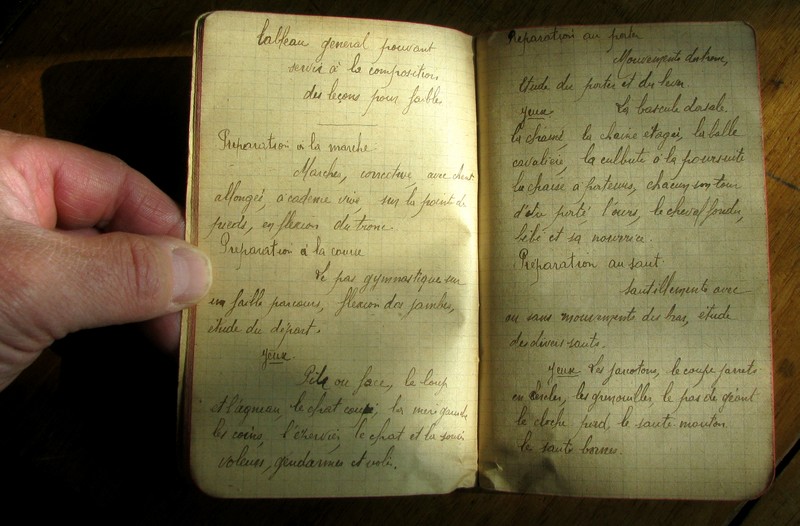 Tableau general pouvant
servir à la composition
des leçons pour faibles
Preparation à la marche
Marches, corrective, avec chant
allongée, à cadence vive, sur la pointe des
pieds, en flexion du tronc.
Preparation à la course
Le pas gymnastique sur
un faible parcours, flexion des jambes,
étude du départ.
Jeux.
Pile ou face, le loup
et l'agneau, le chat coupé, la mère garuche
les coins, l'épervier, le chat et la souris
voleurs, gendarmes et volé.
Preparation au porter
Mouvements du tronc,
étude du porter et du lever.
Jeux. La bascule dorsale,
la chaise, la chaine étagée, la balle
cavalière, la culbute à la poursuite
la chaise à porteurs, chacun son tour
d'être porté l'ours, le cheval fondu,
bébé et sa nourrice.
Préparation au saut.
Sautillements avec
ou sans mouvements des bras, étude
des divers sauts.
Jeux Les jarcotons, le coupe jarrets
en cercles, les grenouilles, le pas de géant
le cloche pied, le saute mouton
le saute bornes.